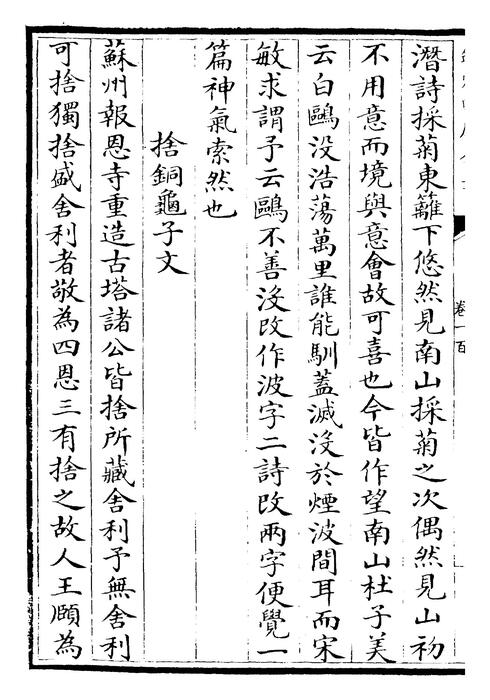 潛詩採菊東籬下悠然見南山採菊之次偶然見山初
不用意而境與意會故可喜也今皆作望南山杜子美
云白鷗没浩蕩萬里誰能馴蓋滅没於煙波間耳而宋
敏求謂予云鷗不善没改作波字二詩改兩字便覺一
篇神氣索然也
捨銅龜子文
蘇州報恩寺重造古塔諸公皆捨所藏舍利予無舍利
可捨獨捨盛舍利者敬為四恩三有捨之故人王頤為
卷一百